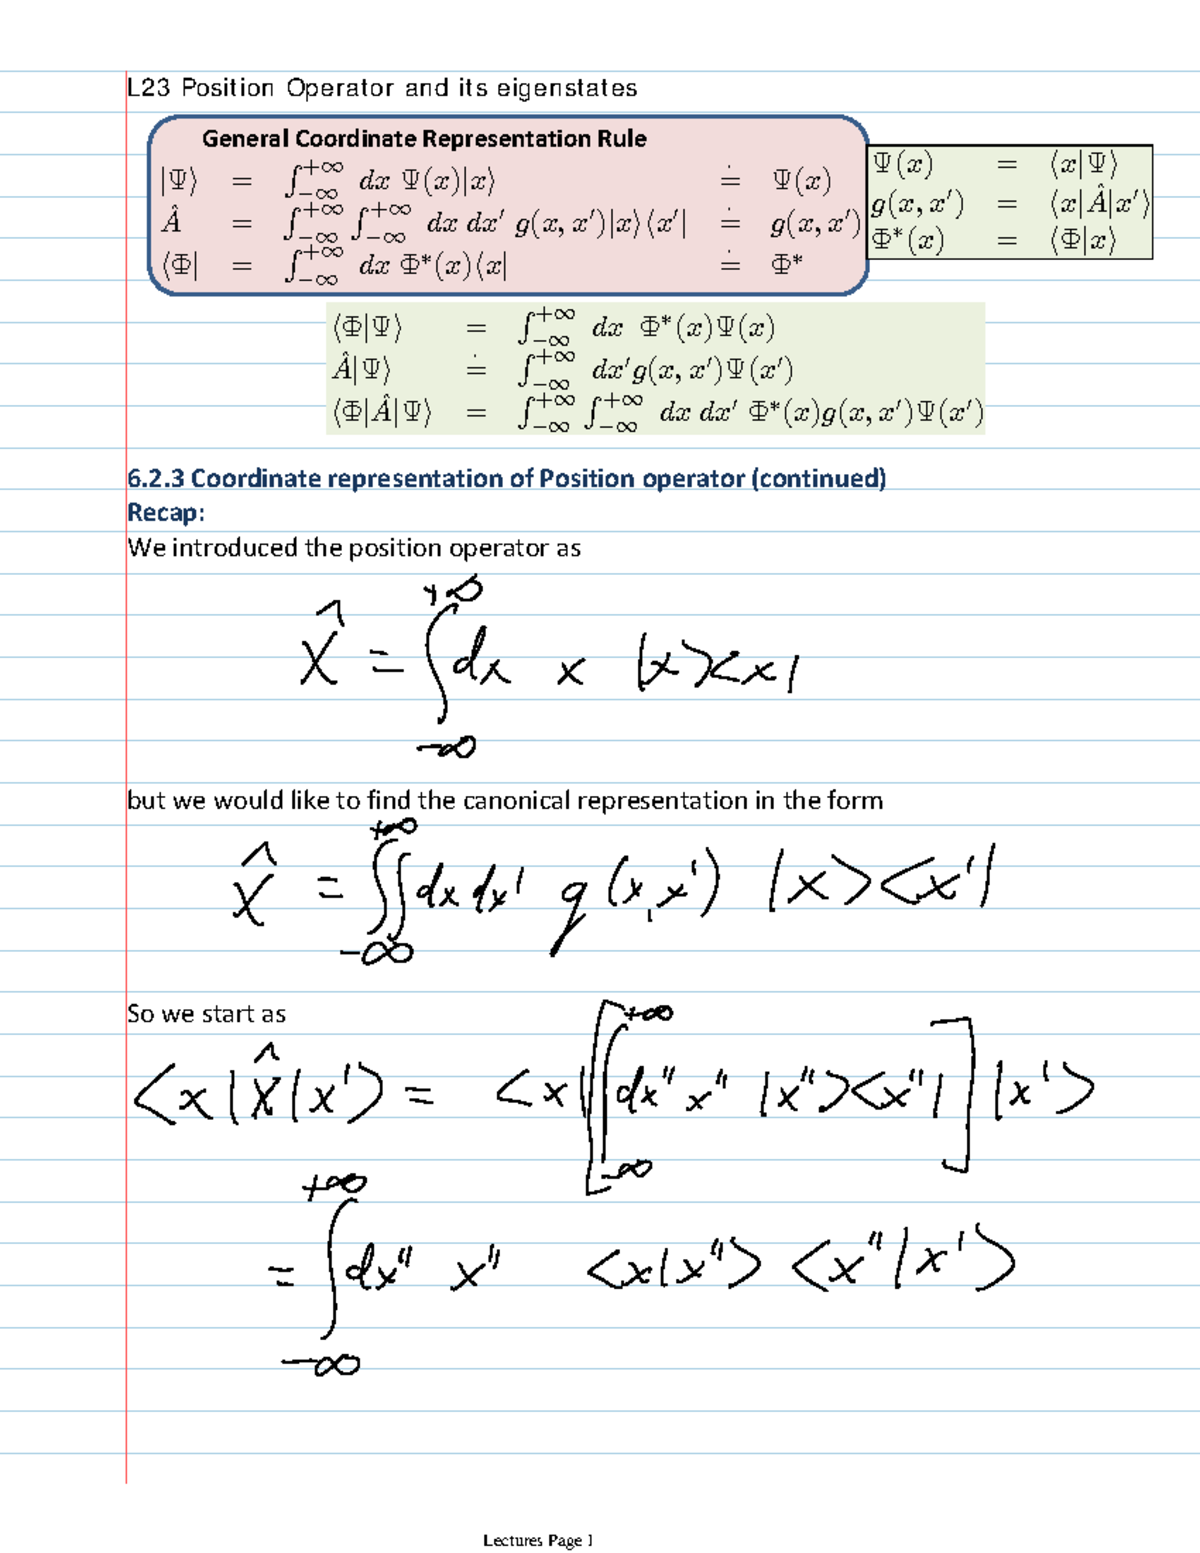 L23 Position Operator and its eigenstates
General Coordinate Representation Rule
|Ψ⟩ = ∫_{−∞}^{+∞} dx Ψ(x)|x⟩ ≐ Ψ(x)
Â = ∫_{−∞}^{+∞} ∫_{−∞}^{+∞} dx dx′ g(x, x′)|x⟩⟨x′| ≐ g(x, x′)
⟨Φ| = ∫_{−∞}^{+∞} dx Φ*(x)⟨x| ≐ Φ*
Ψ(x) = ⟨x|Ψ⟩
g(x, x′) = ⟨x|Â|x′⟩
Φ*(x) = ⟨Φ|x⟩
⟨Φ|Ψ⟩ = ∫_{−∞}^{+∞} dx Φ*(x)Ψ(x)
Â|Ψ⟩ ≐ ∫_{−∞}^{+∞} dx′g(x, x′)Ψ(x′)
⟨Φ|Â|Ψ⟩ = ∫_{−∞}^{+∞} ∫_{−∞}^{+∞} dx dx′ Φ*(x)g(x, x′)Ψ(x′)
6.2.3 Coordinate representation of Position operator (continued)
Recap:
We introduced the position operator as
X̂ = ∫_{−∞}^{+∞} dx x |x><x|
but we would like to find the canonical representation in the form
X̂ = ∫∫_{−∞}^{+∞} dx dx' g(x,x') |x><x'|
So we start as
<x|X̂|x'> = <x|[∫_{−∞}^{+∞} dx" x" |x"><x"|]|x'>
= ∫_{−∞}^{+∞} dx" x" <x|x"> <x"|x'>
Lectures Page 1